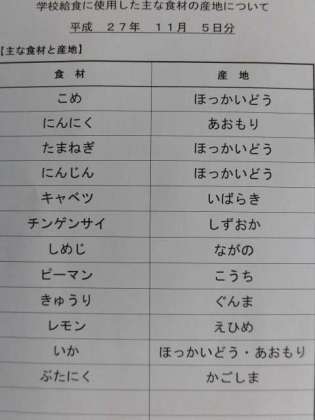 学校給食に使用した主な食材の産地について
平成　２７年　１１月　５日分
【主な食材と産地】
食　材　産　地
こめ　ほっかいどう
にんにく　あおもり
たまねぎ　ほっかいどう
にんじん　ほっかいどう
キャベツ　いばらき
チンゲンサイ　しずおか
しめじ　ながの
ピーマン　こうち
きゅうり　ぐんま
レモン　えひめ
いか　ほっかいどう・あおもり
ぶたにく　かごしま